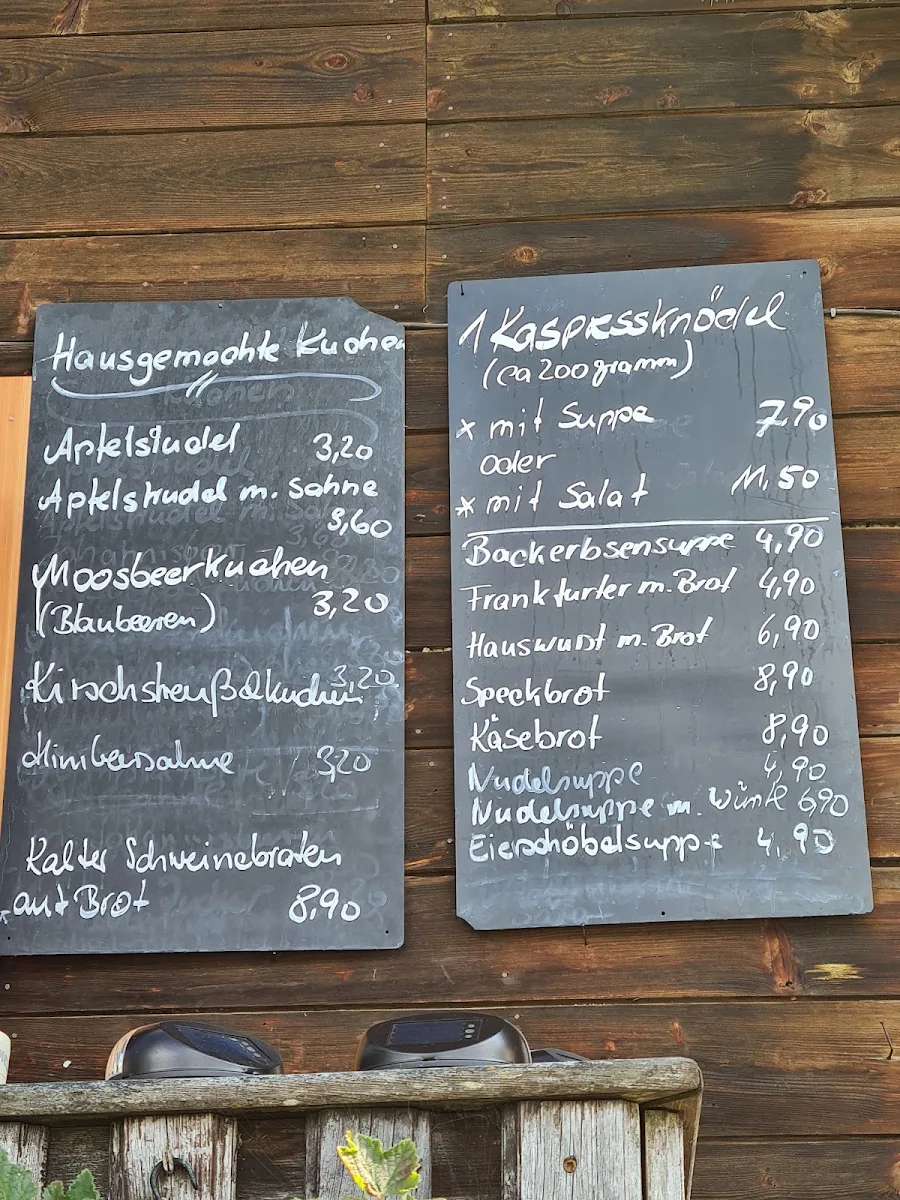 Hausgemachte Kuchen
Apfelstudel 3,20
Apfelstrudel m. Sahne
3,60
Moosbeerkuchen
(Blaubeeren) 3,20
Kirschstreußelkuchen 3,20
Himbeersahne 3,20
Kalter Schweinebraten
auf Brot 8,90
1 Kaspressknödel
(ca 200 gramm)
* mit Suppe 7,90
oder
* mit Salat 11,50
Backerbsensuppe 4,90
Frankfurter m. Brot 4,90
Hauswurst m. Brot 6,90
Speckbrot 8,90
Käsebrot 8,90
Nudelsuppe 4,90
Nudelsuppe m. 6,90
Eierschöbelsuppe 4,90